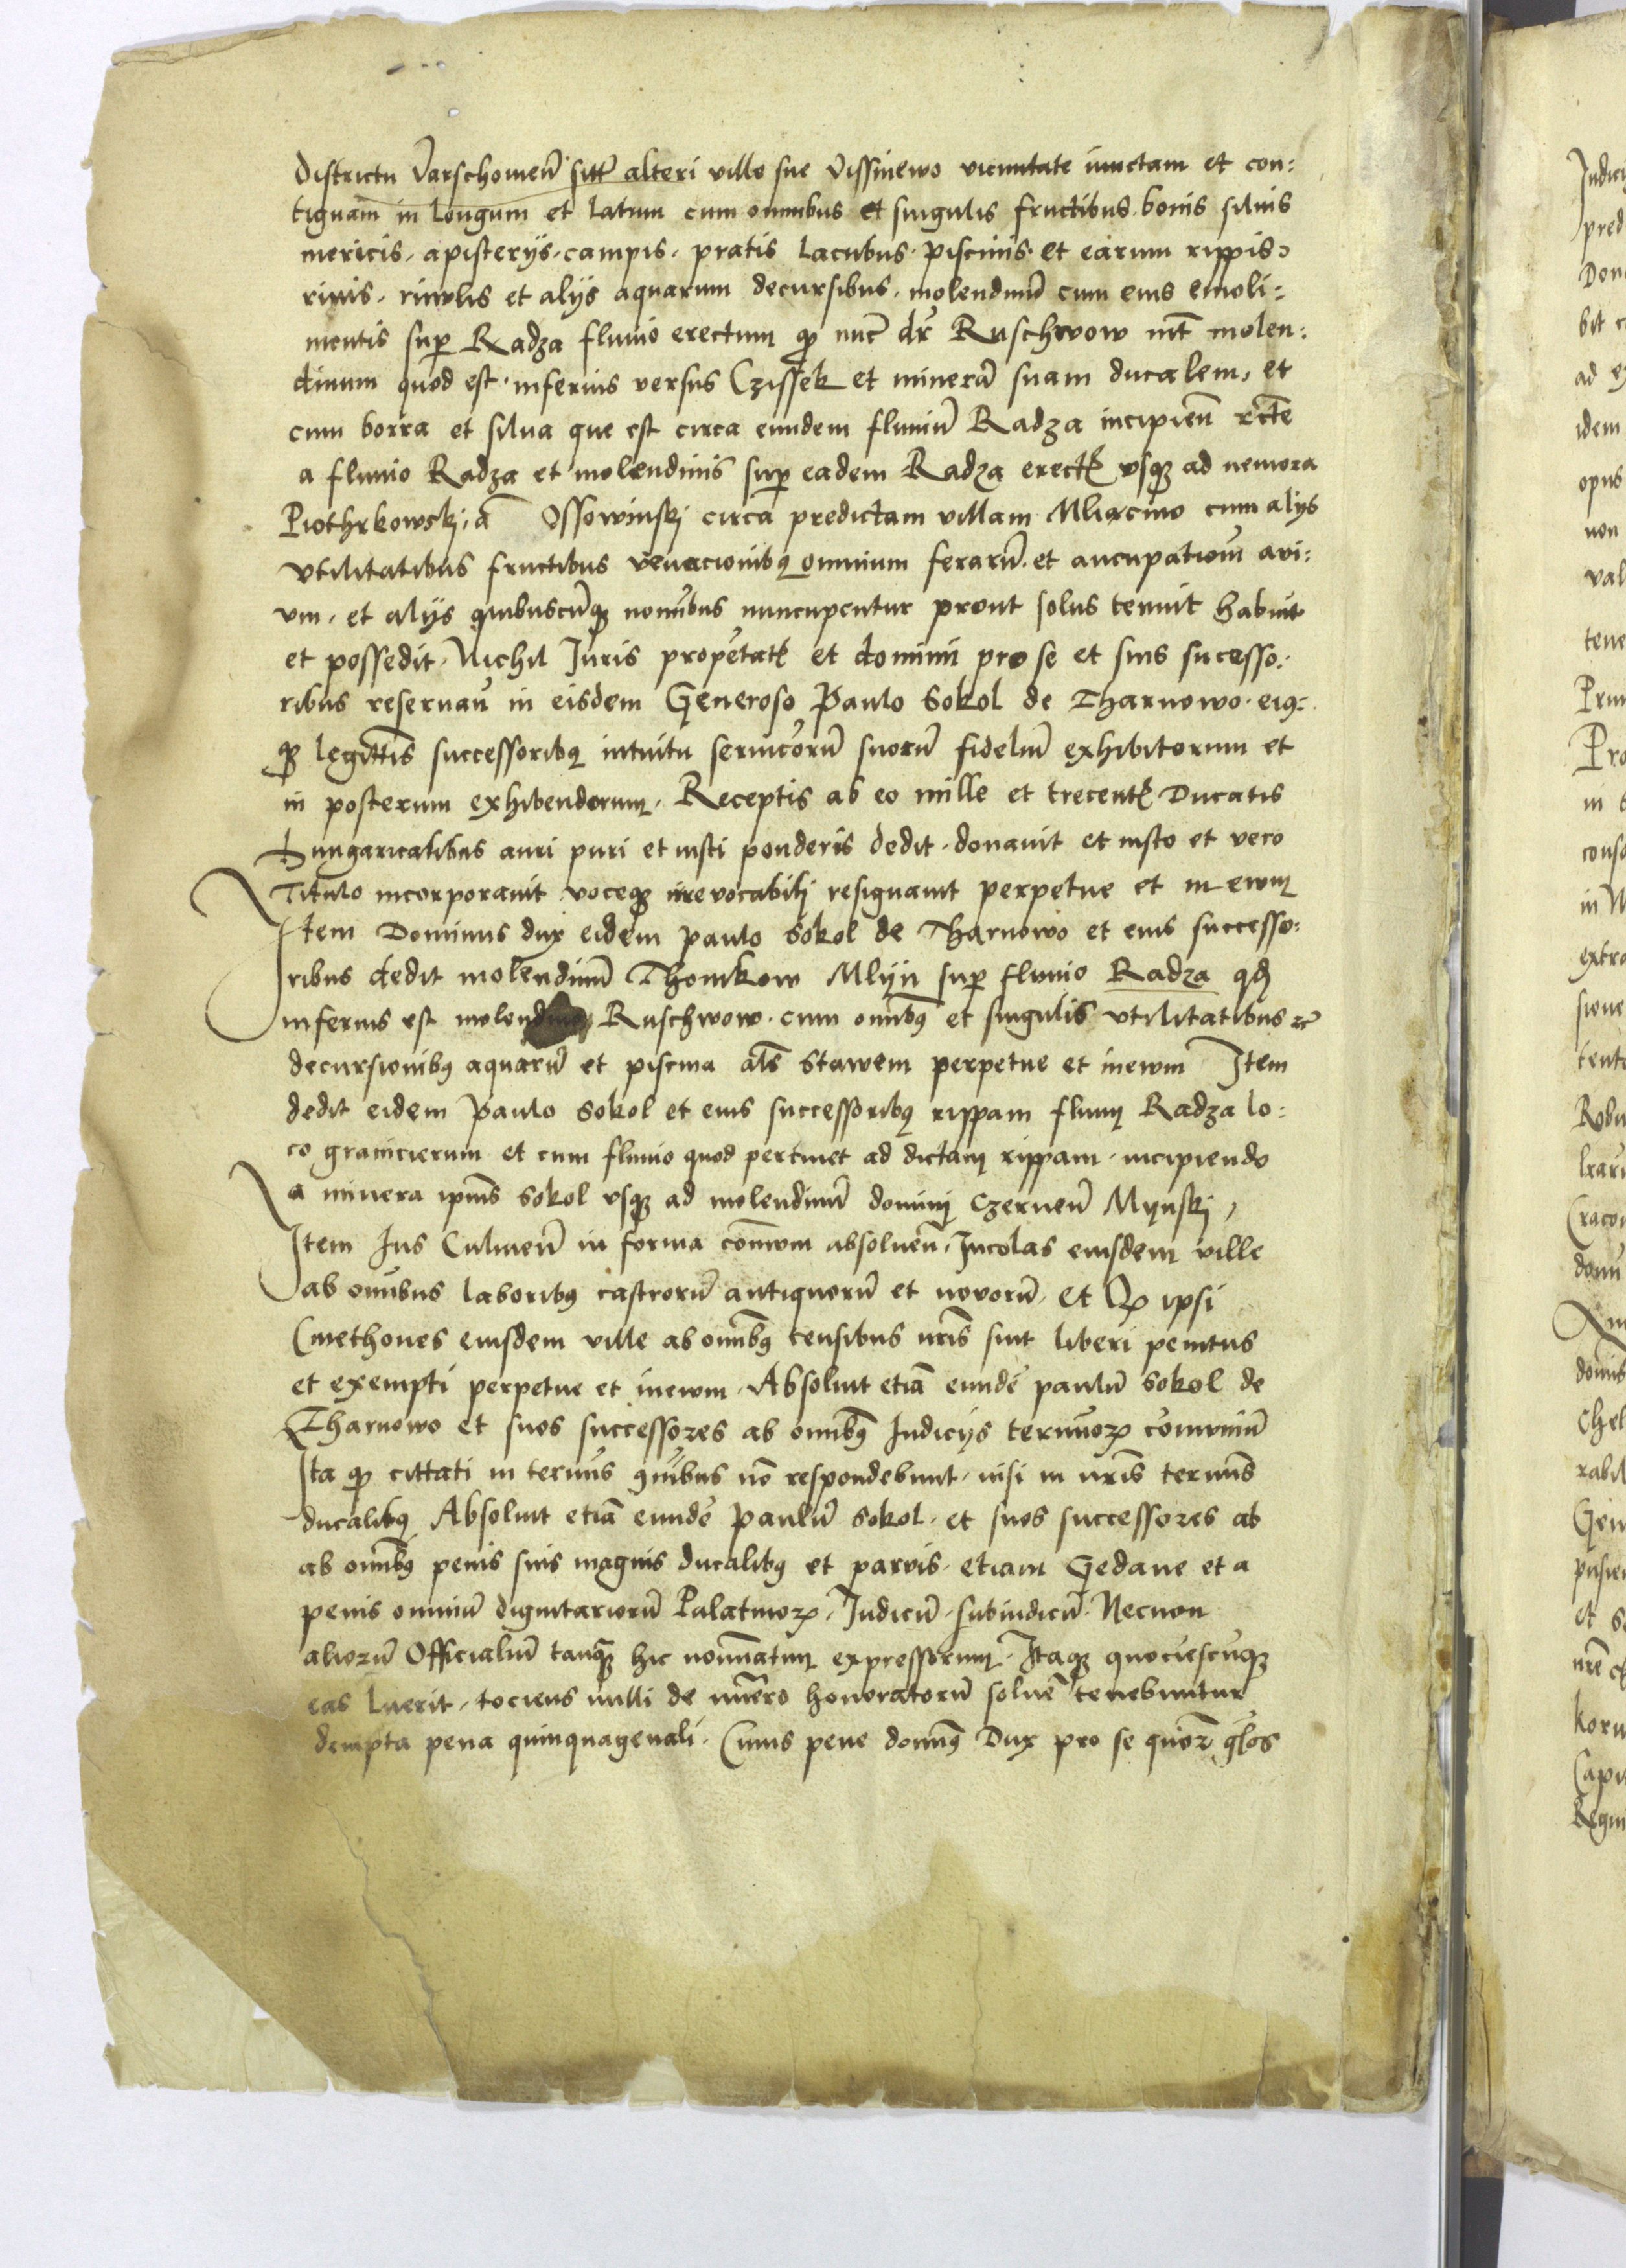 districtu Varschouieñ sitt̃ alteri ville sue Vissinewo vicinitate iunctam et con:
tiguam in longum et latum cum omnibus et singulis fructibus. bonis silvis
mericis. apisterijs. campis. pratis lacubus. piscinis. et earum rippis.
rivis. rivulis et alijs aquarum decursibus. molendinũ cum eius emoli:
mentis sup̃ Radza fluvio erectum q̃ nũc dr̃ Ruschwow nĩt molen:
dinum quod est. inferius versus Czissek et minerã suam ducalem, et
cum borra et silva que est circa eundem fluviũ Radza incipieñ rcte
a fluvio Radza et molendinis sup̃ eadem Radza erectꝭ usqꝫ ad nemora
Piothrkowskj, ã Ossowinskj circa predictam villam Mliącino cum alijs
utilitatibus fructibus venacionibꝫ omnium ferarũ. et aucupationũ avi:
um. et alijs quibuscũqꝫ nomĩbus nuncupentur prout solus tenuit habuit
et possedit. Nichil Juris prop̃etatꝭ et dominii pro se et suis sucesso:
ribus reservaũ in eisdem Generoso Paulo Sokol de Tharnowo. eiꝰ:
qꝫ legittĩs successoribꝫ intuitu servicõrũ suorũ fideliũ exhibitorum et
in posterum exhibendorum. Receptis ab eo mille et trecentꝭ Ducatis
Hungaricalibus auri puri et iusti ponderis dedit. donavit et iusto et vero
Titulo incorporavit voceqꝫ irrevocabilj resignavit perpetue et in ewm
Item Dominus dux eidem paulo Sokol de Tharnowo et eius successo:
ribus dedit molendinũ Thomkow Mlijn sup̃ fluvio Radza qđ
inferius est molendino Ruschwow. cum omĩbꝰ et singulis utilitatibus ⁊
decursionibꝰ aquarũ et piscina al̃s Stawem perpetue et inewm Item
dedit eidem Paulo Sokol et eius successoribꝰ rippam fluvij Radza lo:
co granicierum et cum fluvio quod pertinet ad dictam rippam. incipiendo
a minera ip̃ius Sokol usqꝫ ad molendinũ dominj Czerneñ Mynskj,
Item Ius Culmeñ in forma cõmuni absolueñ. Incolas eiusdem ville
ab omĩbus laboribꝰ castrorũ antiquorũ et novorũ. et Qꝫ ipsi
Cmethones eiusdem ville ab omĩbꝰ censibus nr̃is sint liberi penitus
et exempti perpetue et inewm. Absoluit etiã eundẽ paulũ Sokol de
Tharnowo et suos successores ab omĩbꝰ Iudicijs termĩoꝝ cõmuniũ
Ita qꝫ cittati in termĩs quibus nõ respondebunt. nisi in nr̃is termĩs
ducalibꝰ Absoluit etiã eundẽ Paulũ Sokol. et suos successores ab
ab omĩbꝰ penis suis magnis ducalibꝰ et parvis. etiam Gedane et a
penis omniũ dignitariorũ Palatinoꝝ. Iudicũ. Subiudicũ. Necnon
aliorũ Officialiũ tanqũ hic nomĩnatim expressorum. Itaqꝫ quociescũqꝫ
eas luerit. tociens nulli de nũero honoratorũ solvẽ tenebuntur
dempta pena quinquagenali. Cuius pene domĩꝰ Dux pro se quoꝝ q̃los